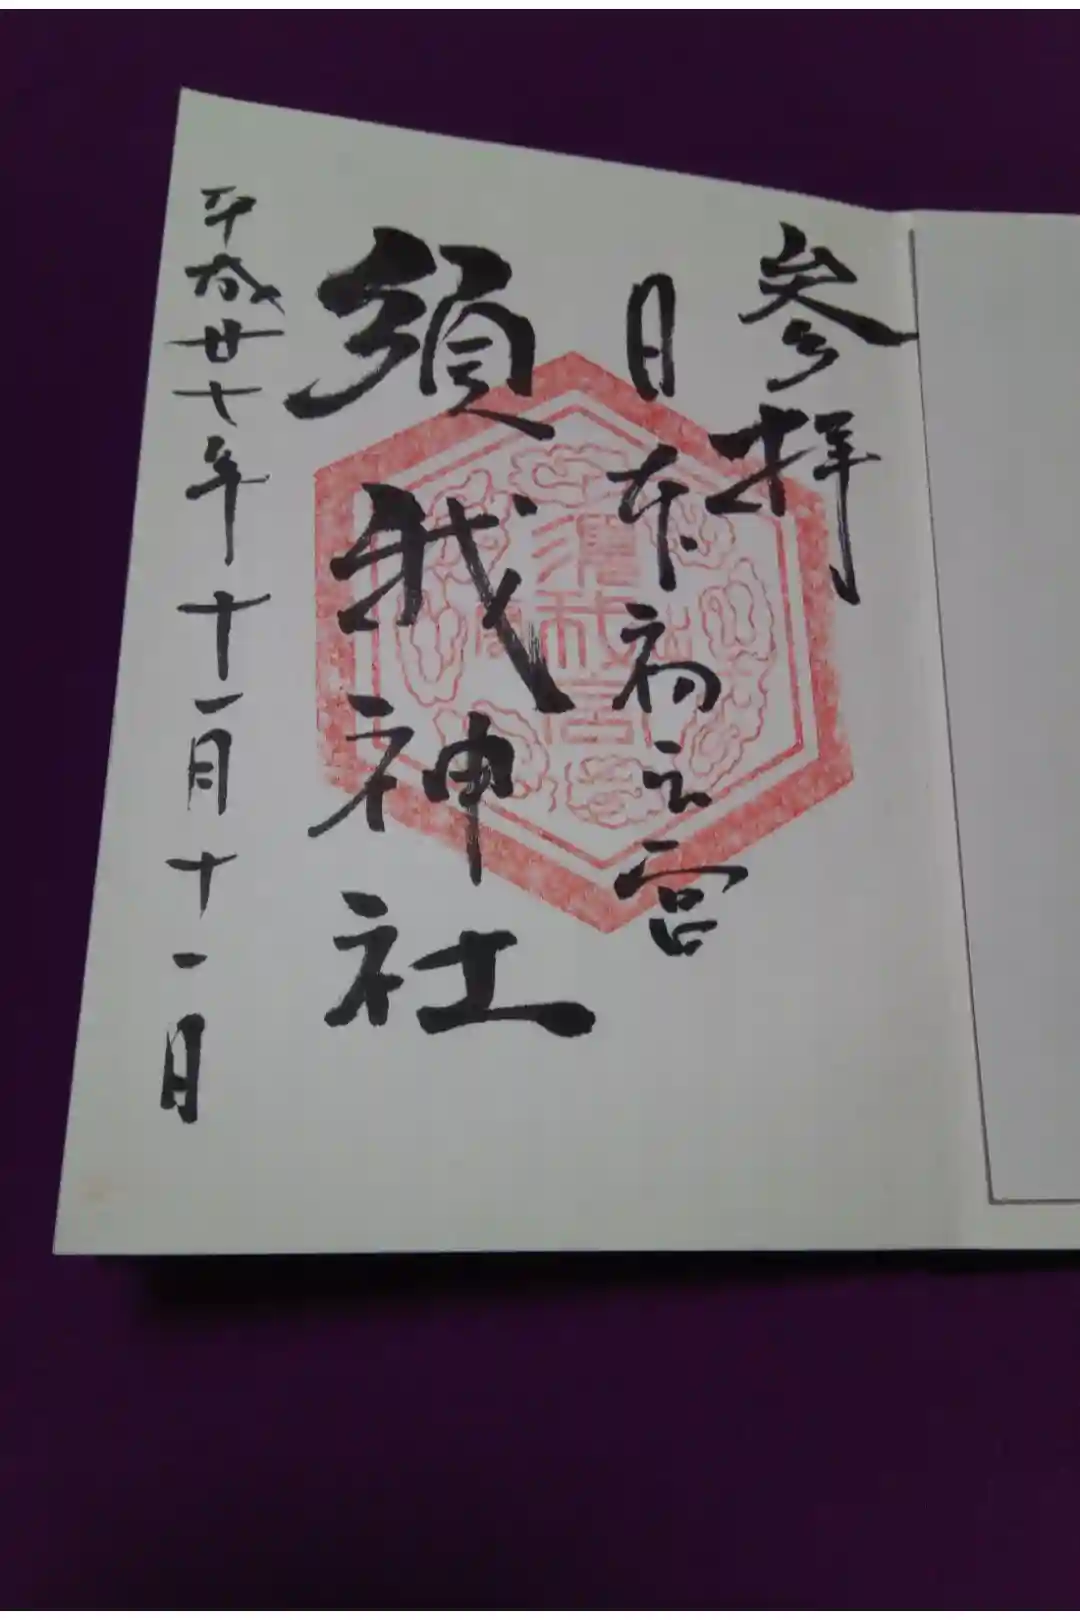 參拝
日本初之宮
須我神社
平成廿七年十一月十一日